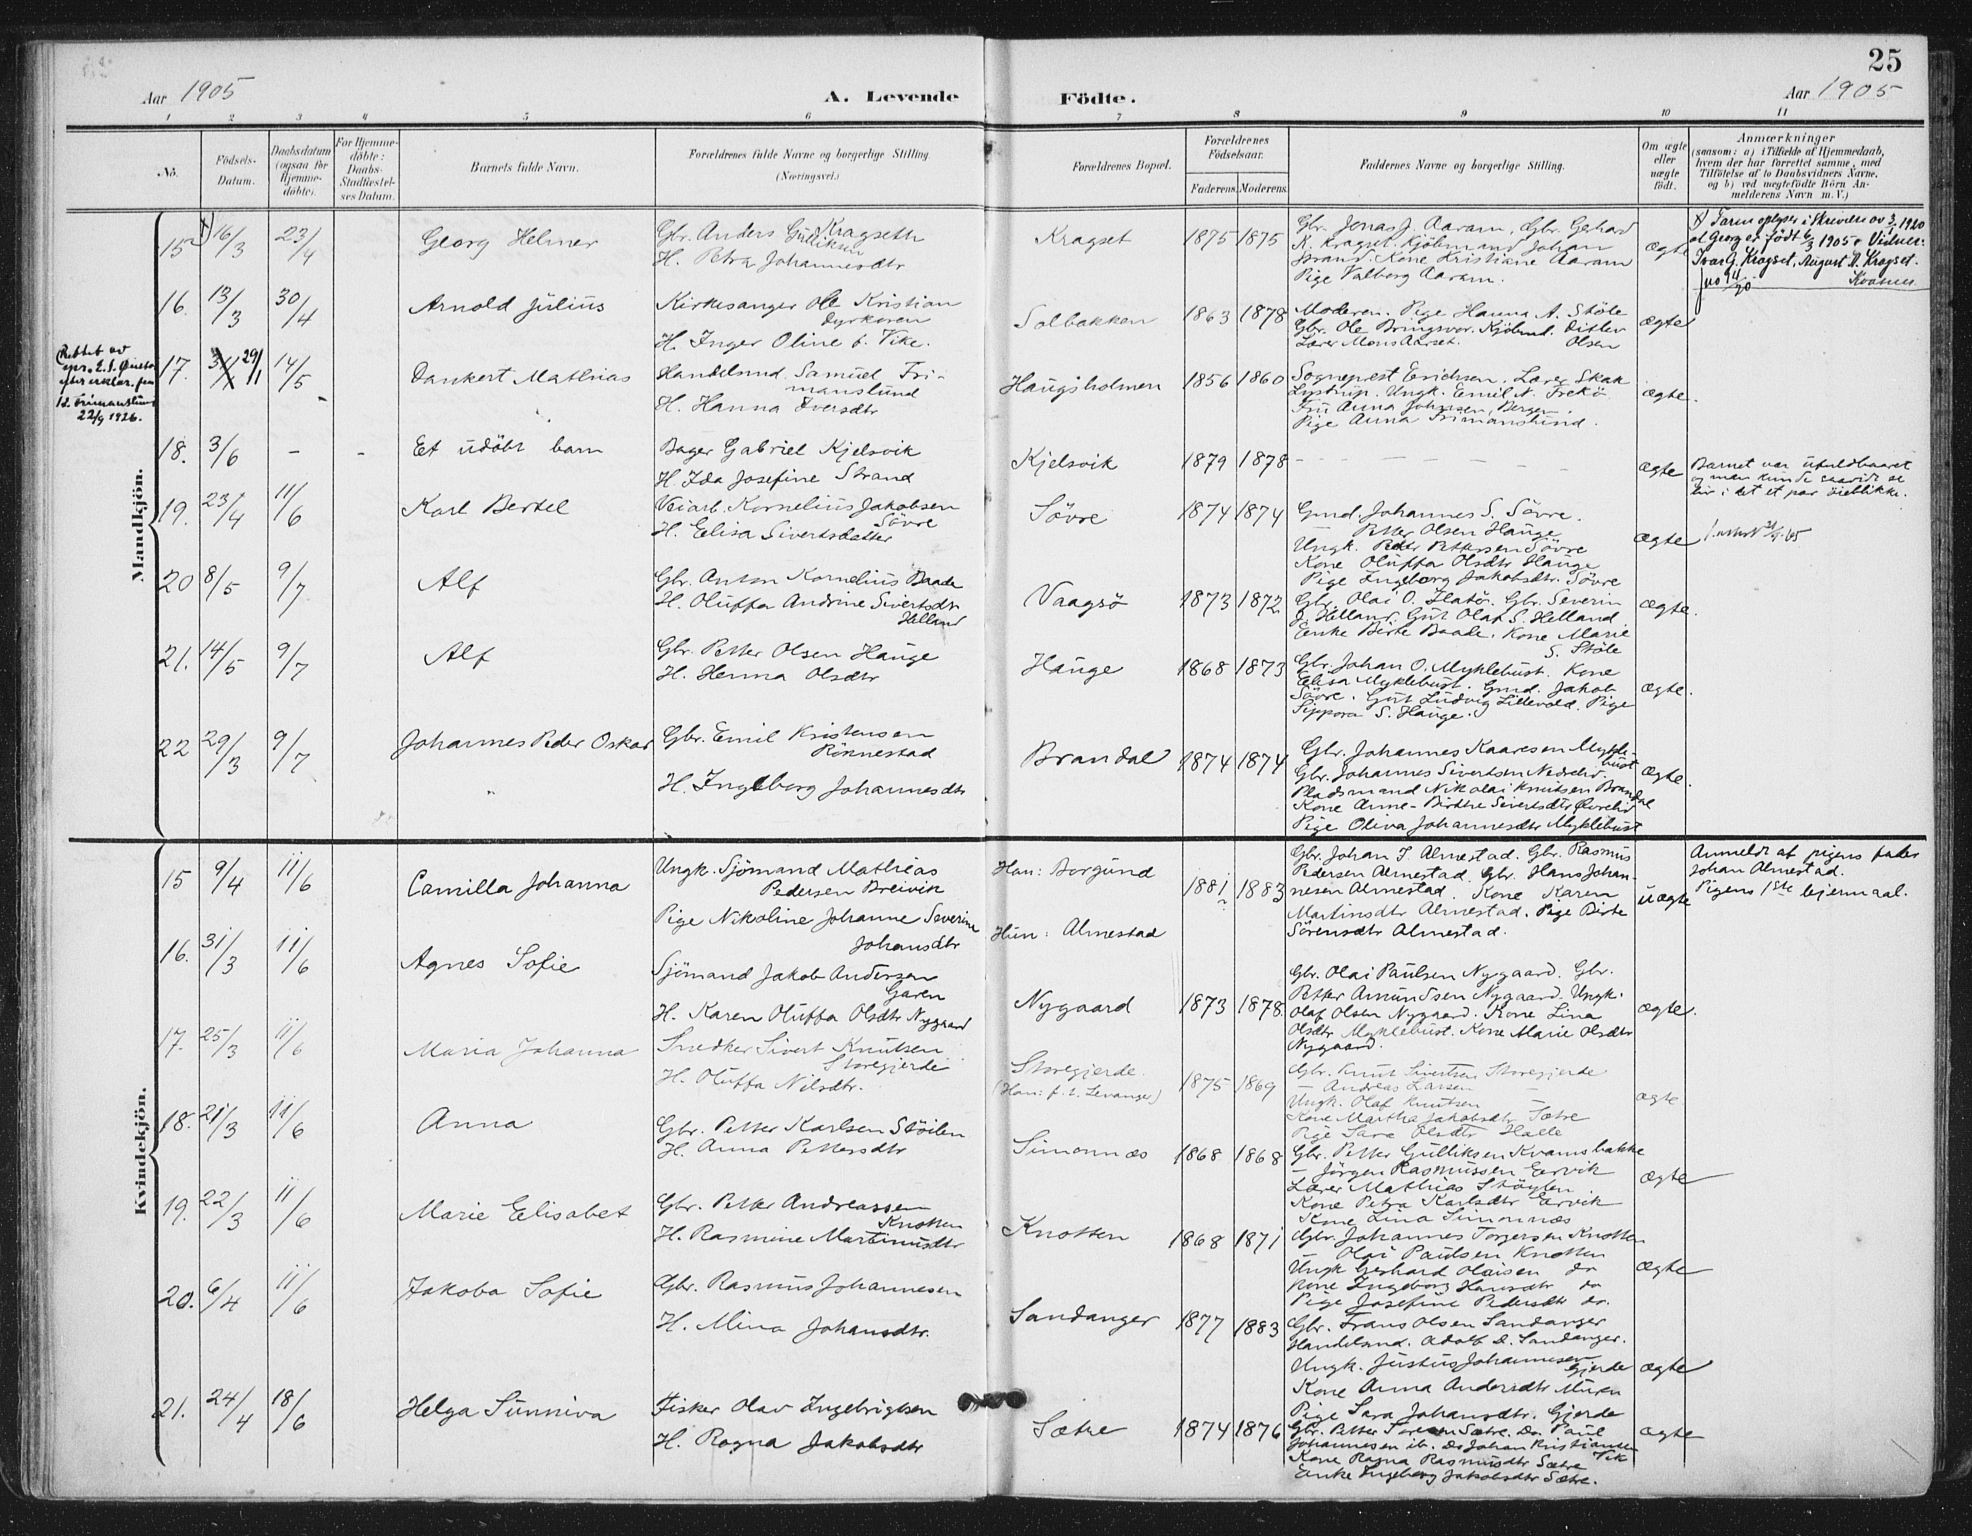 25
Aar 1905
A. Levende
Födte.
Aar 1905
1 2 3 4 5 6 7 8 9 10 11
No.
Födsels-
Datum.
Daabsdatum
(ogsaa for
Hjemme-
döbte).
For Hjemme-
döbte:
Daabs-
Stadfæstel-
ses Datum.
Barnets fulde Navn.
Forældrenes fulde Navne og borgerlige Stilling
(Næringsvei.)
Forældrenes Bopæl.
Forældrenes
Födselsaar.
Faderens. Moderens.
Faddernes Navne og borgerlige Stilling.
Om ægte
eller
uægte
født.
Anmærkninger
(saasom: a) i Tilfælde af Hjemmedaab,
hvem der har forrettet samme, med
Tilföielse af to Daabsvidners Navne,
og b) ved uægtefödte Börn An-
melderens Navn m. V.)
Mandkjön.
15 16/3 23/4
Georg Helmer
Gbr. Anders Gulliksen Kragseth
H. Petra Johannesdtr
Kragset
1875 1875
Gbr. Jonas J. Aaram, Gbr. Gerhard
K. Kragset. Kjöbmand Johan
Strand. Kone Kristiane Aaram
Pige Valborg Aaram.
ægte
at Georg er født 6/3 1905. Vidner:
Ivar G. Kragset, August A. Kragset.
16. 13/3 30/4
Arnold Julius
Kirkesanger Ole Kristian
Dyrkoren
H. Inger Oline f. Vike.
Solbakken
1863 1878
Moderen. Pige Hanna A. Stöle
Gbr. Ole Bringsvor. Kjöbmd. Ditlev
Lærer Mons Aarset. Olsen
ægte
Rettet av
22/9 1926.
17. 29/1 14/5
Dankert Mathias
Handelsmd Samuel Fri-
manslund
H. Hanna Iversdtr
Haugsholmen
1856 1860
Sogneprest Erichsen. Lærer Skak
Lystrup. Ungk. Emil N. Frekö
Fru Anna Johnsen, Bergen.
Pige Anna Frimanslund.
ægte.
18. 3/6 - -
Et udöbt barn
Bager Gabriel Kjelsvik
H. Ida Josefine Strand
Kjelsvik
1879 1878
- - - - - -
ægte
Barnet var ufuldbaaret
og man kunde saavidt se
liv i det et par öieblikke.
19. 23/4 11/6
Karl Bertel
Veiarb. Kornelius Jakobsen
Sövre
H. Elisa Sivertsdatter
Sövre
1874 1874
Gmd. Johannes S. Sövre.
Petter Olsen Hauge
Ungk. Peder Pettersen Sövre
Kone Oluffa Olsdtr Hauge
Pige Ingeborg Jakobsdtr. Sövre
ægte
20 8/5 9/7
Alf
Gbr. Anton Kornelius Baade
H. Oluffa Andrine Sivertsdtr
Helland
Vaagsö
1873 1872
Gbr. Olai O. Flatö. Gbr. Severin
J. Helland. Gut Olaf S. Helland
Enke Birte Baade. Kone Marie
S. Stöle
ægte.
21. 14/5 9/7
Alf
Gbr. Petter Olsen Hauge
H. Henna Olsdtr
Hauge
1868 1873
Gbr. Johan O. Myklebust. Kone
Elisa Myklebust. Gmd. Jakob
Sövre. Gut Ludvig Lillevold. Pige
Sippora S. Hauge.
ægte.
22 29/3 9/7
Johannes Peder Oskar
Gbr. Emil Kristensen
Rönnestad
H. Ingeborg Johannesdtr
Brandal
1874 1874
Gbr. Johannes Kaaresen Mykle-
bust
Gbr. Johannes Sivertsen Nedrelid.
Pladsmand Nikolai Knutsen Brandal
Kone Anne-Birthe Sivertsdtr Øvrelid
Pige Oliva Johannesdtr Myklebust
ægte.
Kvindekjön.
15 9/4 11/6
Camilla Johanna
Ungk. Sjömand Mathias
Pedersen Breivik
Pige Nikoline Johanne Severine
Johansdtr
Han: Borgund
Hun: Almestad
1881 1883
Gbr. Johan I. Almestad. Gbr. Rasmus
Pedersen Almestad. Gbr. Hans Johan-
nesen Almestad. Kone Karen
Martinsdtr Almestad. Pige Birte
Sörensdtr Almestad.
uægte
Anmeldt af pigens fader
Johan Almestad.
Pigens 1ste leiermaal.
16. 31/3 11/6
Agnes Sofie
Sjömand Jakob Andersen
Garen
H. Karen Oluffa Olsdtr Nygaard
Nygaard
1873 1878.
Gbr. Olai Paulsen Nygaard. Gbr.
Petter Amundsen Nygaard. Ungk.
Olaf Olsen Nygaard. Kone Lina
Olsdtr Myklebust. Kone Marie Olsdtr
Nygaard.
ægte.
17. 25/3 11/6
Maria Johanna
Snedker Sivert Knutsen
Storegjerde
H. Oluffa Nilsdtr.
Storegjerde.
(Han: f. t. Levanger)
1875 1869
Gbr. Knut Sivertsen Storegjerde
— Andreas Larsen —
Ungk. Olaf Knutsen —
Kone Martha Jakobsdtr Sætre
Pige Sara Olsdtr Halle
ægte
18. 21/3 11/6
Anna
Gbr. Petter Karlsen Stöilen
H. Anna Pettersdtr
Simonnæs
1868 1868
Gbr. Petter Gulliksen Kvamsbakke
— Jörgen Rasmussen Eervik
Lærer Mathias Stöylen
Kone Petra Karlsdtr Eervik
Kone Lina Simonnæs
ægte
19. 22/3 11/6
Marie Elisabet
Gbr. Petter Andreassen
Knotten
H. Rasmine Martinusdtr
Knotten
1868 1871
Gbr. Johannes Torgersen Knotten
— Olai Paulsen Knotten
Ungk Gerhard Olaisen do
Kone Ingeborg Hansdtr do
Pige Josefine Pedersdtr do.
ægte
20. 6/4 11/6
Jakoba Sofie
Gbr. Rasmus Johannesen
H. Mina Johansdtr.
Sandanger
1877 1883
Gbr. Frans Olsen Sandanger
Handelsmd. Adolf D. Sandanger.
Ungk. Justus Johannesen
Gjerde
Kone Anna Andersdtr Muren
Pige Sara Johansdtr. Gjerde
ægte
21. 24/4 18/6
Helga Sunniva
Fisker Olav Ingebrigtsen
H. Ragna Jakobsdtr
Sætre
1874 1876
Gbr. Petter Sørensen Sætre. Do. Paul
Johannesen ib. Do Johan Kristiansen
Vik
Kone Ragna Rasmusdtr Sætre
Enke Ingeborg Jakobsdtr Sætre.
ægte